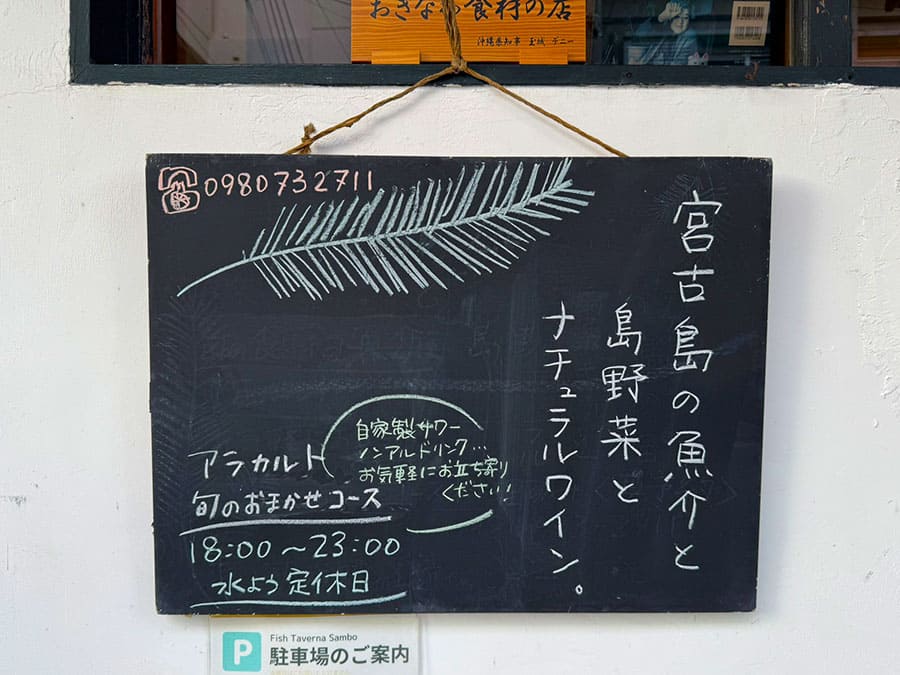 おきなわ食材の店
沖縄県知事 玉城 デニー
0980732711
宮古島の魚介と
島野菜と
ナチュラルワイン。
自家製サワー
ノンアルドリンク…
お気軽にお立ち寄り
ください!
アラカルト
旬のおまかせコース
18:00〜23:00
水よう定休日
P
Fish Taverna Sambo
駐車場のご案内